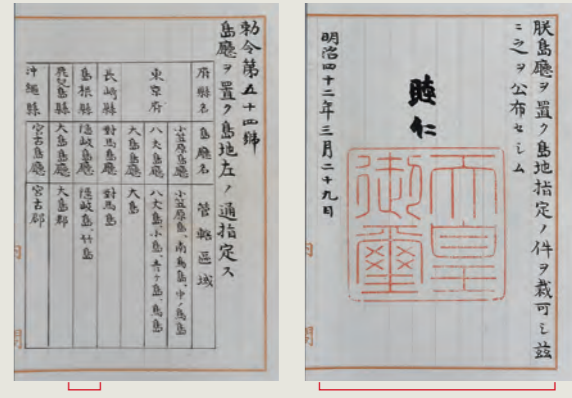 朕島廳ヲ置ク島地指定ノ件ヲ裁可シ茲
ニ之ヲ公布セシム
睦仁
天皇御璽
明治四十二年三月二十九日
勅令第五十四號
島廳ヲ置ク島地左ノ通指定ス
府縣名 島廳名 管轄區域
東京府 小笠原島廳 小笠原島、南鳥島、中ノ鳥島
八丈島廳 八丈島、小島、青ヶ島、鳥島
大島廳 大島
長崎縣 對馬島廳 對馬島
島根縣 隱岐島廳 隱岐島、竹島
鹿兒島縣 大島島廳 大島郡
沖繩縣 宮古島廳 宮古郡